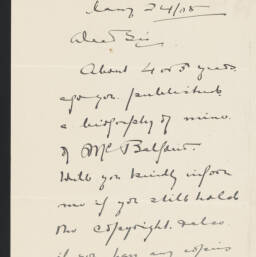 Jany 24/05
Dear Sir,
About 4 or 5 years
ago you published
a biography of mine
of Mr Balfour.
Will you kindly inform
me if you still hold
the copyright. & also
if you have any copies